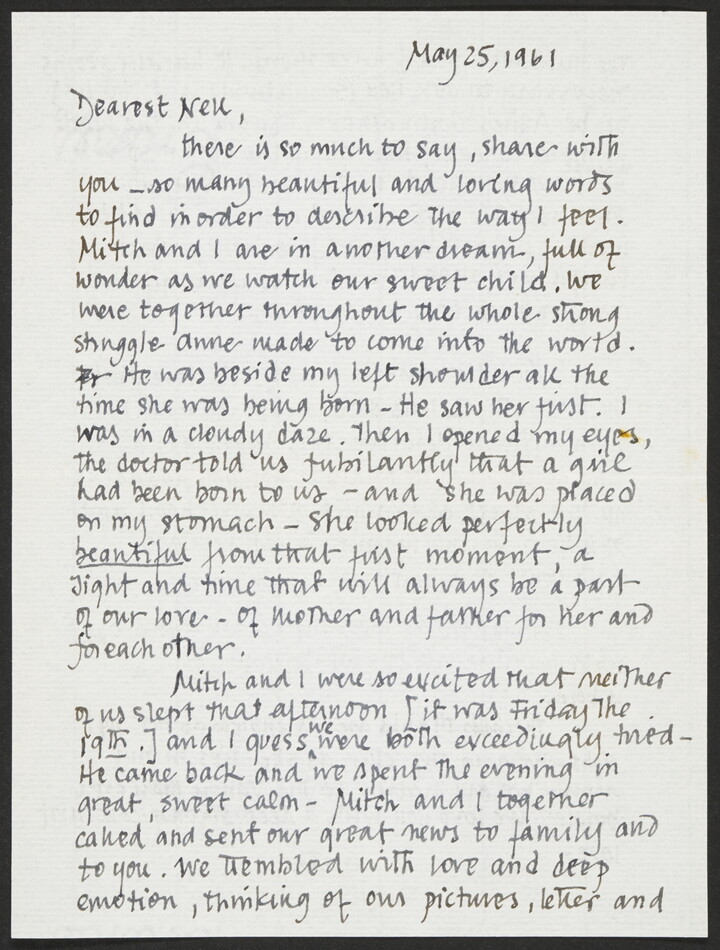 May 25, 1961
Dearest Nell,
there is so much to say, share with
you – so many beautiful and loving words
to find in order to describe the way I feel.
Mitch and I are in another dream, full of
wonder as we watch our sweet child. We
were together throughout the whole strong
struggle Anne made to come into the world.
He was beside my left shoulder all the
time she was being born – He saw her first. I
was in a cloudy daze. Then I opened my eyes,
the doctor told us jubilantly that a girl
had been born to us – and she was placed
on my stomach – She looked perfectly
beautiful from that first moment, a
sight and time that will always be a part
of our love – of mother and father for her and
for each other.
Mitch and I were so excited that neither
of us slept that afternoon [it was Friday the
19th.] and I guess we were both exceedingly tired –
He came back and we spent the evening in
great, sweet calm – Mitch and I together
called and sent our great news to family and
to you. We trembled with love and deep
emotion, thinking of our pictures, letter and